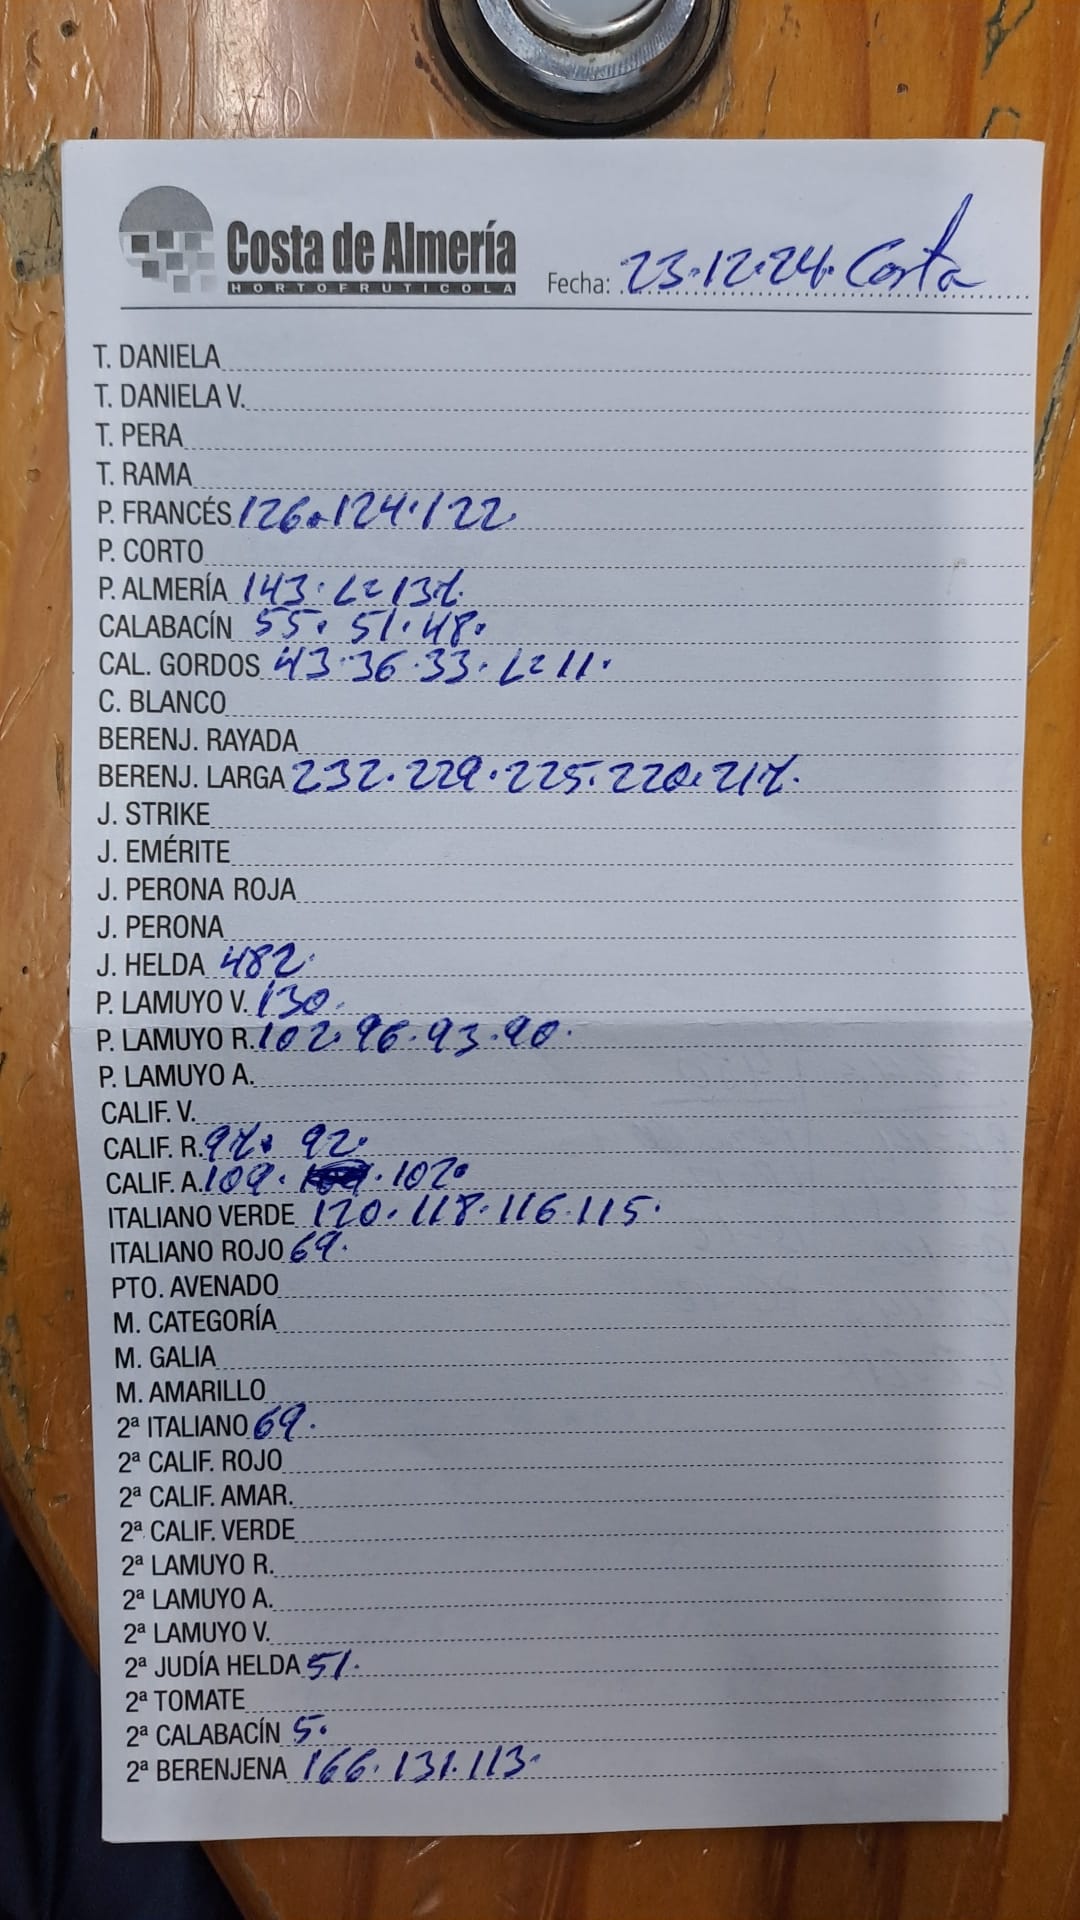 Costa de Almería
HORTOFRUTICOLA
Fecha: 23.12.24. Costa
T. DANIELA
T. DANIELA V.
T. PERA
T. RAMA
P. FRANCÉS 126.124.122.
P. CORTO
P. ALMERÍA 143. L=137.
CALABACÍN 55. 51.48.
CAL. GORDOS 43.36.33. L=11.
C. BLANCO
BERENJ. RAYADA
BERENJ. LARGA 232.229.225.220.217.
J. STRIKE
J. EMÉRITE
J. PERONA ROJA
J. PERONA
J. HELDA 482.
P. LAMUYO V. 130.
P. LAMUYO R. 102.96.93.90.
P. LAMUYO A.
CALIF. V.
CALIF. R. 97. 92.
CALIF. A. 109. .102.
ITALIANO VERDE 120.118.116.115.
ITALIANO ROJO 69.
PTO. AVENADO
M. CATEGORÍA
M. GALIA
M. AMARILLO
2ª ITALIANO 69.
2ª CALIF. ROJO
2ª CALIF. AMAR.
2ª CALIF. VERDE
2ª LAMUYO R.
2ª LAMUYO A.
2ª LAMUYO V.
2ª JUDÍA HELDA 51.
2ª TOMATE
2ª CALABACÍN 5.
2ª BERENJENA 166.131.113.